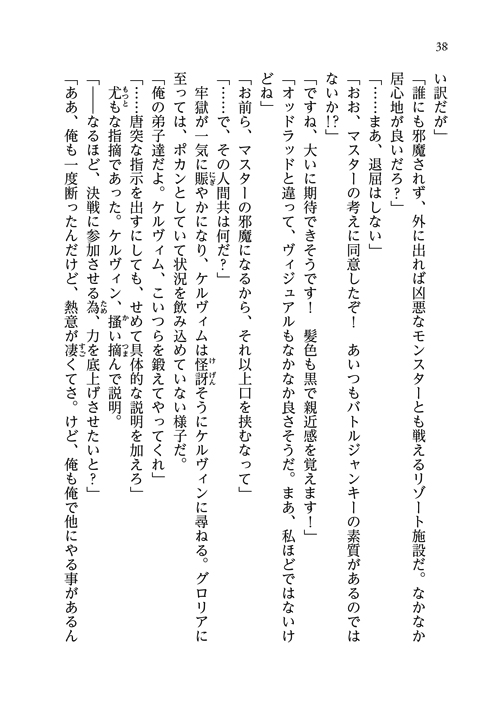 38
い訳だが」
「誰にも邪魔されず、外に出れば凶悪なモンスターとも戦えるリゾート施設だ。なかなか
居心地が良いだろ？」
「……まあ、退屈はしない」
「おお、マスターの考えに同意したぞ！　あいつもバトルジャンキーの素質があるのでは
ないか!?」
「ですね、大いに期待できそうです！　髪色も黒で親近感を覚えます！」
「オッドラッドと違って、ヴィジュアルもなかなか良さそうだ。まあ、私ほどではないけ
どね」
「お前ら、マスターの邪魔になるから、それ以上口を挟むなって」
「……で、その人間共は何だ？」
牢獄が一気に賑やかになり、ケルヴィムは怪訝そうにケルヴィンに尋ねる。グロリアに
至っては、ポカンとしていて状況を飲み込めていない様子だ。
「俺の弟子達だよ。ケルヴィム、こいつらを鍛えてやってくれ」
「……唐突な指示を出すにしても、せめて具体的な説明を加えろ」
尤もな指摘であった。ケルヴィン、掻い摘んで説明。
「――なるほど、決戦に参加させる為、力を底上げさせたいと？」
「ああ、俺も一度断ったんだけど、熱意が凄くてさ。けど、俺も俺で他にやる事があるん